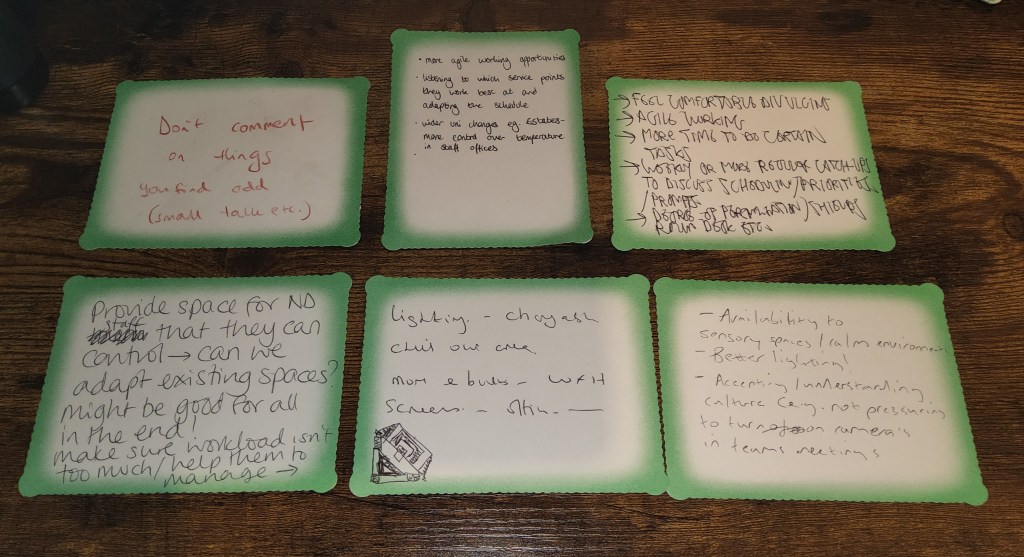 Don't comment
on things
you find odd
(small talk etc.)
• more agile working opportunities
• listening to which service points
they work best at and
adapting the schedule
• wider uni changes eg. Estates-
more control over temperature
in staff offices
•
→ FEEL COMFORTABLE DIVULGING
→ AGILE WORKING
→ MORE TIME TO DO CERTAIN
TASKS
→ WEEKLY OR MORE REGULAR CATCH-UPS
TO DISCUSS SCHEDULING/PRIORITIES
/PROMPTS
→ DEGREE OF /SHIELDS
ROUND DESK ETC.
Provide space for ND
staff that they can
control → can we
adapt existing spaces?
might be good for all
in the end!
make sure workload isn't
too much/help them to
manage →
Lighting. -
chill out area.
more e books - WFH
Screens. -
- Availability to
sensory spaces/calm environment
- Better lighting!
- Accepting/understanding
culture (e.g. not pressuring
to turn on camera's
in teams meetings